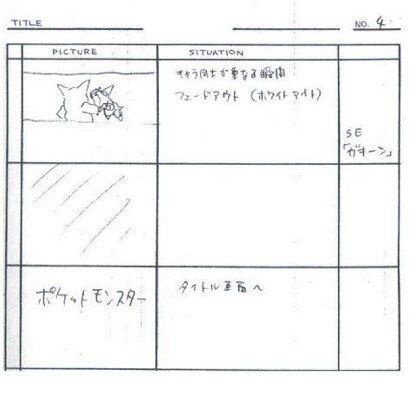 TITLE
NO. 4
PICTURE
SITUATION
キャラ同士が重なる瞬間
フェードアウト (ホワイトアウト)
SE
「ガキーン」
ポケットモンスター
タイトル画面へ